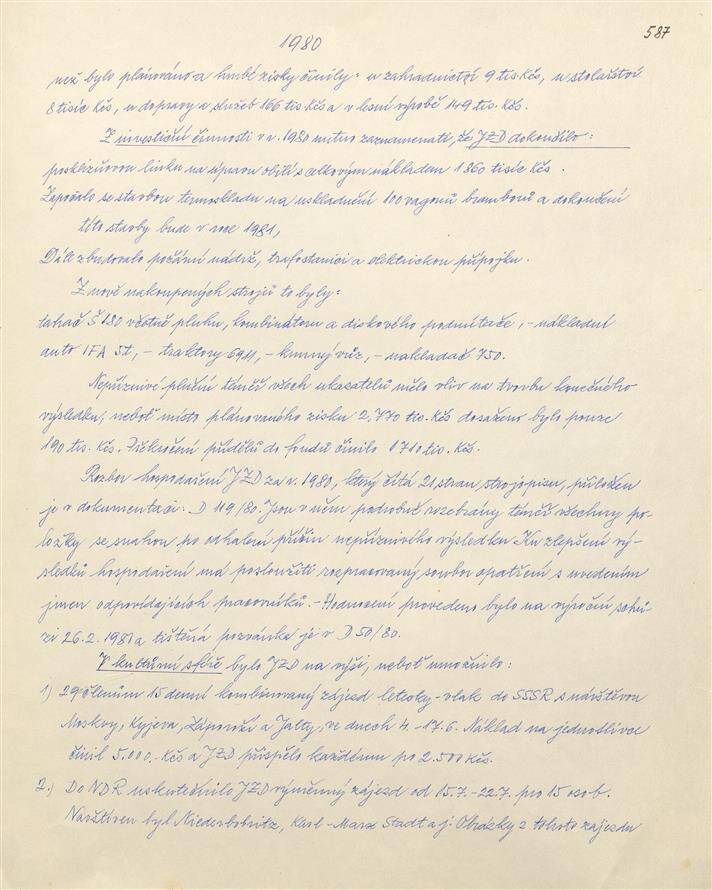 587
1980
než bylo plánováno a hrubé zisky činily: u zahradnictví 9 tis. Kčs, u stolařství
8 tisíc Kčs, u dopravy a služeb 166 tis. Kčs a v lesní výrobě 149 tis. Kčs.
Z investiční činnosti v r. 1980 nutno zaznamenati, že JZD dokončilo:
posklizňovou linku na úpravu obilí s celkovým nákladem 1860 tisíc Kčs.
Započalo se stavbou termoskladu na uskladnění 100 vagonů brambor a dokončení
této stavby bude v roce 1981,
Dále zbudovalo požární nádrž, trafostanici a elektrickou přípojku.
Z nově nakoupených strojů to byly:
tahač Š 180 včetně pluhu, kombinátoru a diskového podmítače, - nákladní
auto IFA 5t, - traktory 6911, - krmný vůz, - nakladač 750.
Nepříznivé plnění téměř všech ukazatelů mělo vliv na tvorbu konečného
výsledku, neboť místo plánovaného zisku 2,770 tis. Kčs dosaženo bylo pouze
190 tis. Kčs. přídělů do fondů činilo 710 tis. Kčs.
Rozbor hospodaření JZD za r. 1980, který čítá 21 stran strojopisu, přiložen
je v dokumentaci: D 119/80. Jsou v něm podrobně rozebrány téměř všechny po-
ložky se snahou po odhalení příčin nepříznivého výsledku. Ku zlepšení vý-
sledků hospodaření má posloužiti rozpracovaný soubor opatření s uvedením
jmen odpovídajících pracovníků. - Hodnocení provedeno bylo na výroční schů-
zi 26.2.1981 a tištěná pozvánka je v D 50/80.
V kulturní sféře bylo JZD na výši, neboť umožnilo:
1) 29 členům 15 denní kombinovaný zájezd letecky - vlak do SSSR s návštěvou
Moskvy, Kyjeva, Záporoží a Jalty, ve dnech 4. - 17.6. Náklad na jednotlivce
činil 5.000.- Kčs a JZD přispělo každému po 2.500 Kčs.
2.) Do NDR uskutečnilo JZD výměnný zájezd od 15.7. - 22.7. pro 15 osob.
Navštíven byl Niederbobritz, Karl-Marx Stadt a j. Obrázky z tohoto zájezdu